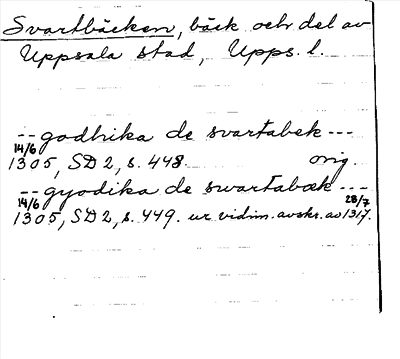 Svartbäcken, bäck och del av
Uppsala stad, Upps. l.
-- godhika de svartabek ---
14/6 1305, SD 2, s. 448. orig.
-- gyodika de swartabæk ---
14/6 1305, SD 2, s. 449. ur vidim. avskr. av 28/7 1317.